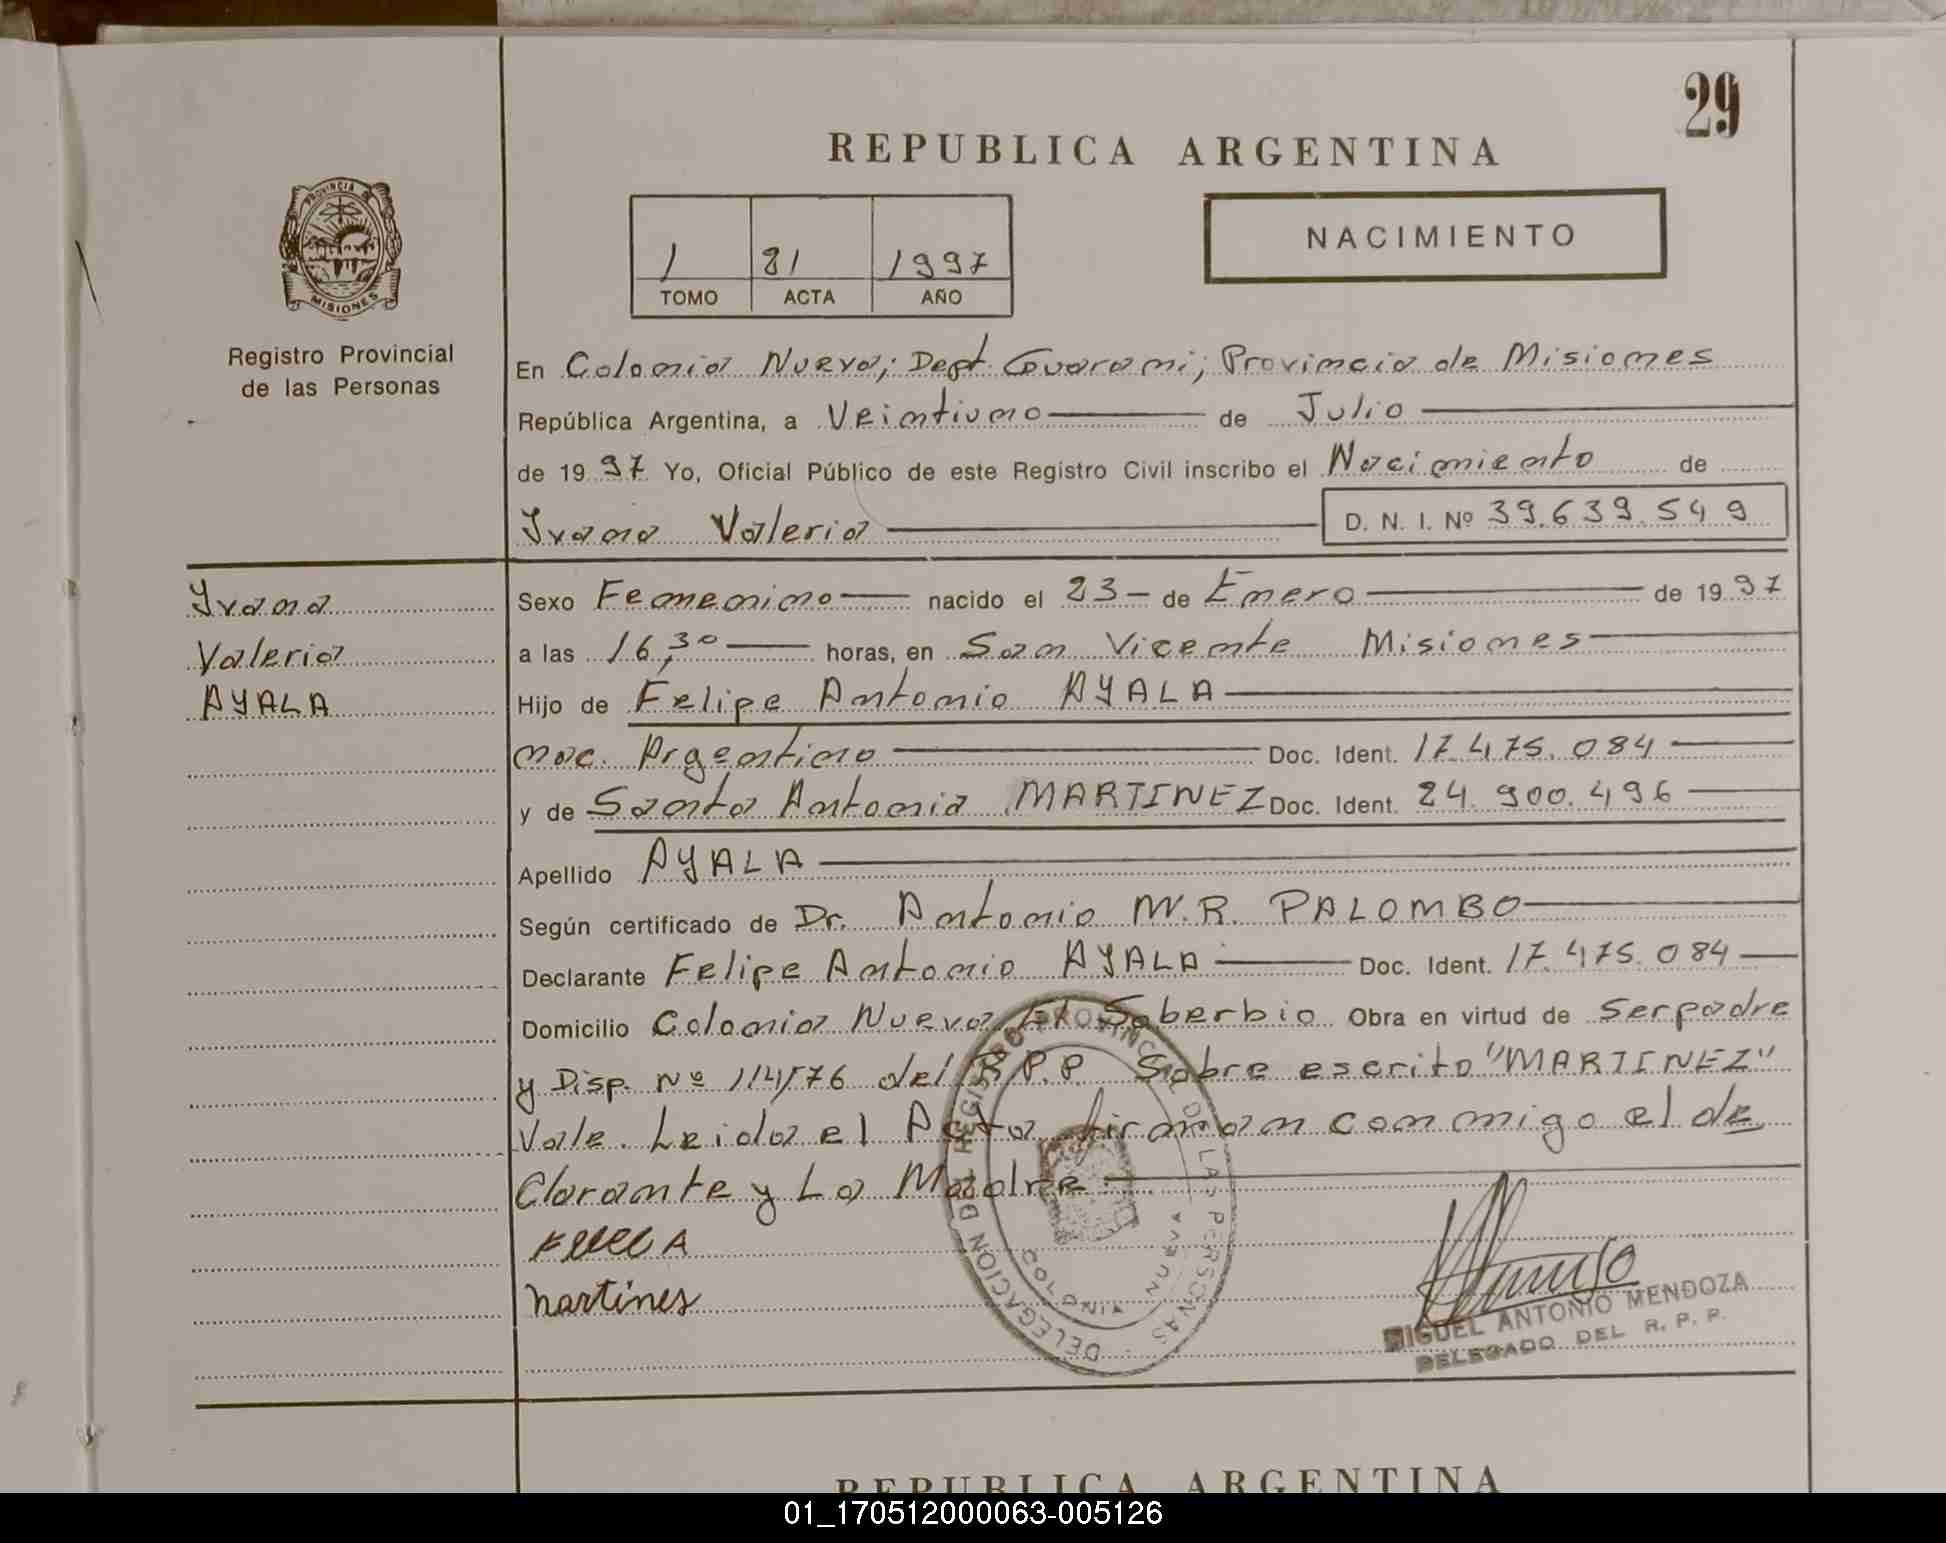 29
REPUBLICA ARGENTINA
PROVINCIA DE
MISIONES
Registro Provincial
de las Personas
1 81 1997
TOMO ACTA AÑO
NACIMIENTO
En Colonia Nueva; Dept. Guarani; Provincia de Misiones
República Argentina, a Veintiuno de Julio
de 1997 Yo, Oficial Público de este Registro Civil inscribo el Nacimiento de
Ivana Valeria D. N. I. Nº 39.639.549
Ivana
Valeria
AYALA
Sexo Femenino nacido el 23 de Enero de 1997
a las 16,30 horas, en San Vicente Misiones
Hijo de Felipe Antonio AYALA
nac. Argentino Doc. Ident. 17.475.084
y de Santa Antonia MARTINEZ Doc. Ident. 24.900.496
Apellido AYALA
Según certificado de Dr. Antonio M.R. PALOMBO
Declarante Felipe Antonio AYALA Doc. Ident. 17.475.084
Domicilio Colonia Nueva El Soberbio Obra en virtud de Serpadre
y Disp. Nº 114/76 del R.P.P. Sobre escrito "MARTINEZ"
Vale. Leida el Acta firman conmigo el de
Clarante y La Madre
martines
DELEGACION DEL REGISTRO PROVINCIAL DE LAS PERSONAS
COLONIA NUEVA
MIGUEL ANTONIO MENDOZA
DELEGADO DEL R. P. P.
REPUBLICA ARGENTINA
01_170512000063-005126